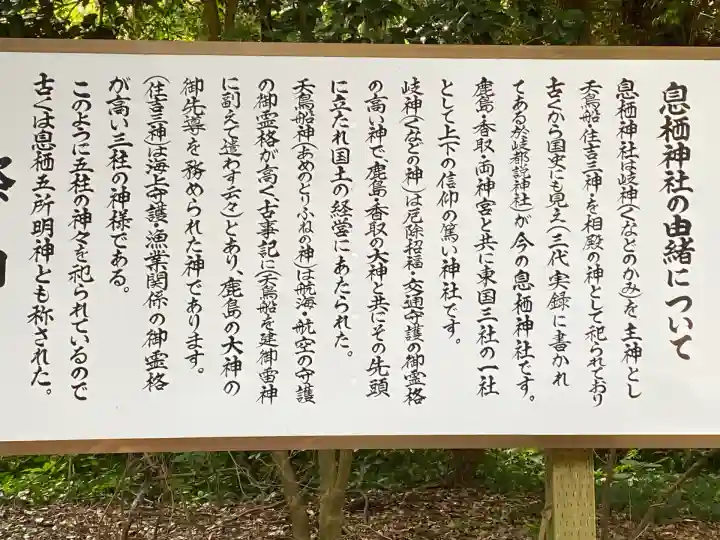 息栖神社の由緒について
息栖神社は岐神(くなどのかみ)を主神とし
天鳥船・住吉三神を相殿の神として祀られており
古くから国史にも見え(三代実録に書かれ
てある於岐都説神社)が今の息栖神社です。
鹿島・香取・両神宮と共に東国三社の一社
として上下の信仰の篤い神社です。
岐神(くなどの神)は厄除招福・交通守護の御霊格
の高い神で、鹿島・香取の大神と共にその先頭
に立たれ国土の経営にあたられた。
天鳥船神(あめのとりふねの神)は航海・航空の守護
の御霊格が高く、古事記に(天鳥船を建御雷神
に副えて遣わす云々)とあり、鹿島の大神の
御先導を務められた神であります。
(住吉三神)は海上守護・漁業関係の御霊格
が高い三柱の神様である。
このように五柱の神々を祀られているので
古くは息栖五所明神とも称された。